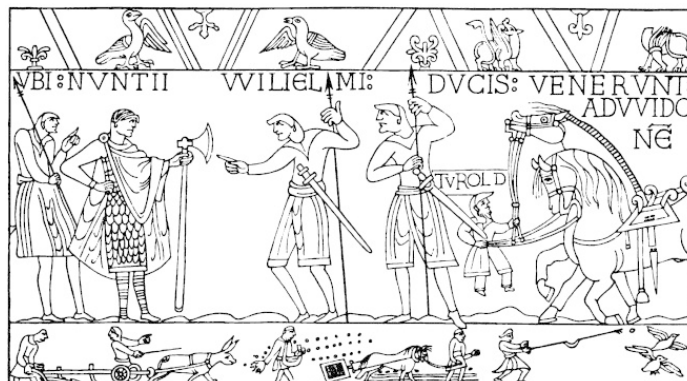 VBI : NVNTII VVILIELMI : DVCIS : VENERVNT
ADVVIDO
NĒ
TVROLD